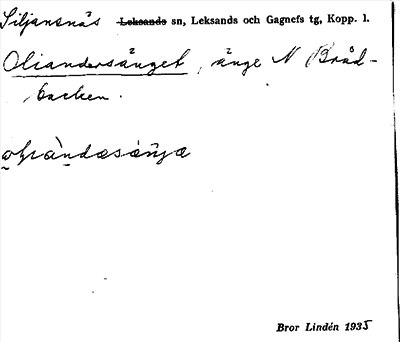 Siljansnäs Leksands sn, Leksands och Gagnefs tg, Kopp. l.
Oliandersänget, änge N Bråd-
backen.
Bror Lindén 1935